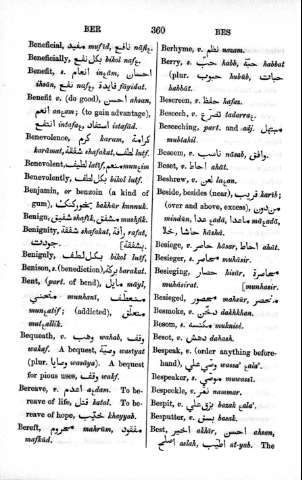 BER 360 BES
Beneficial, مفيد mufíd, نافع náfie.
Beneficially, بكل نفع bikol nafe.
Benefit, s. انعام ineám, احسان
ihsán, نفع nafe, فايدة fáyidat.
Benefit v. (do good), احسن ahsan,
انعم aneam; (to gain advantage),
انتفع intafae, استفاد istafád.
Benevolence, كرم karum, كرامة
karámat, شفقة shafakat, لطف lutf.
Benevolent, لطيف latíf, منعم muneim
Benevolently, بكل لطف bikol lutf.
Benjamin, or benzoin (a kind of
gum), بخور كنك bakhúr kunnuk.
Benign, شفيق shafík, مشفق mushfik.
Benignity, شفقة shafakat, رأفة ráfat,
جودت.
Benignly, بكل لطف bikol lutf. [بشفقة
Benison, s. (benediction), بركة barakat.
Bent, (part. of bend), مايل máyl,
منحني munhant, منعطف
muneatif; (addicted), متعلق
muteallik.
Bequeath, v. وهب wahab, وقف
wakaf. A bequest, وصية wasíyat
(plur. وصايا wasáya). A bequest
for pious uses, وقف wakf.
Bereave, v. اعدم aedam. To be-
reave of life, قتل katol. To be-
reave of hope, خيب khayyab.
Bereft, محروم mahrúm, مفقود
mafkúd.
Berhyme, v. نظم nazam.
Berry, s. حب habb, حبة habbat
(plur. حبوب hubúb, حبات
habbát.
Bescreen, v. حفظ hafaz.
Beseech, v. تضرع tadarrae.
Beseeching, part. and adj. مبتهل
mubtahil.
Beseem, v. ناسب násab, وافق.
Beset, v. احاط ahát.
Beshrew, v. لعن laean.
Beside, besides (near), قريب karíb;
(over and above, except), من دون
mindún, عدا eadá, ما عدا má eadá,
حاشا háshá, خلا.
Besiege, v. حاصر hásar, احاط ahát.
Besieger, s. محاصر muhásir.
Besieging, حصار hisár, محاصرة
muhásirat. [munhasir.
Besieged, محصور mahsúr, منحصر
Besmoke, v. دخن dakhkhan.
Besom, s. مكنسة muknisé.
Besot, v. دهش dahash.
Bespeak, v. (order anything before-
hand), وصى علي wassa ealá.
Bespeaker, s. موصي muwassí.
Bespeckle, v. نمر nammar.
Bespit, v. بزق علي bazak ealá.
Besputter, v. بزق bazak.
Best, اخير akhír, احسن ahsen,
اصلح aslah, اطيب at-yab. The